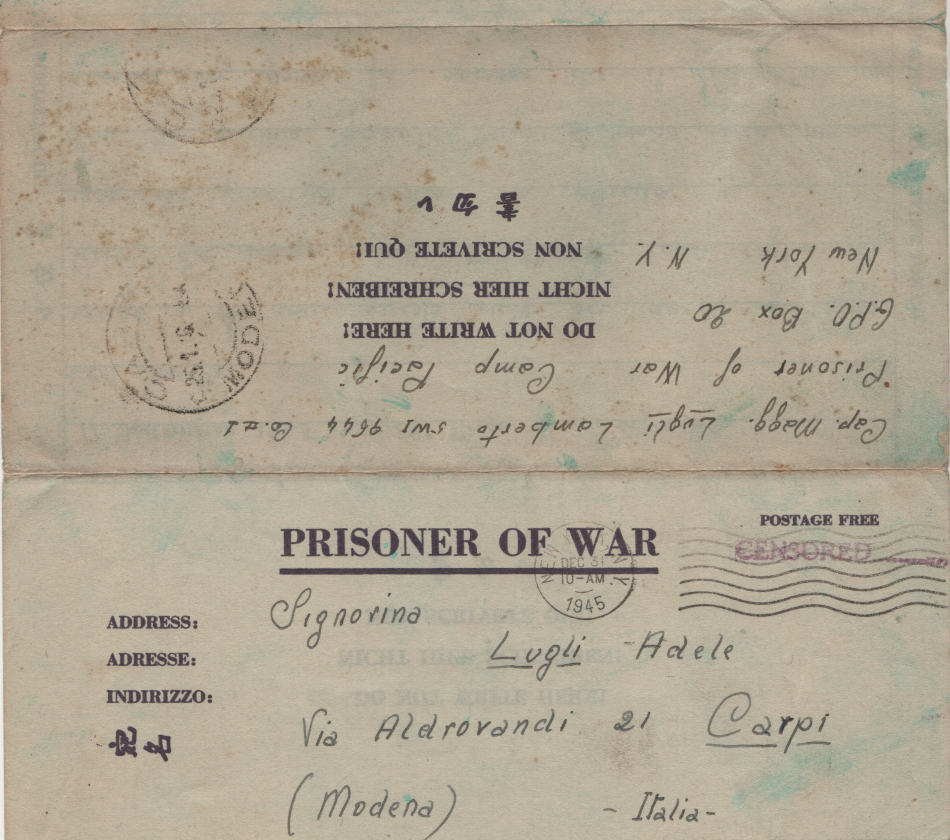 Cap. Magg. Lugli Lamberto 5WI 9644 Co. #1
Prisoner of War Camp Pacific
G.P.O. Box 20
New York N.Y.
DO NOT WRITE HERE!
NICHT HIER SCHREIBEN!
NON SCRIVETE QUI!
書勿レ
MODE
PRISONER OF WAR
POSTAGE FREE
CENSORED
DEC 31
10-AM
1945
ADDRESS:
ADRESSE:
INDIRIZZO:
宛名
Signorina
Lugli Adele
Via Aldrovandi 21 Carpi
(Modena) - Italia -